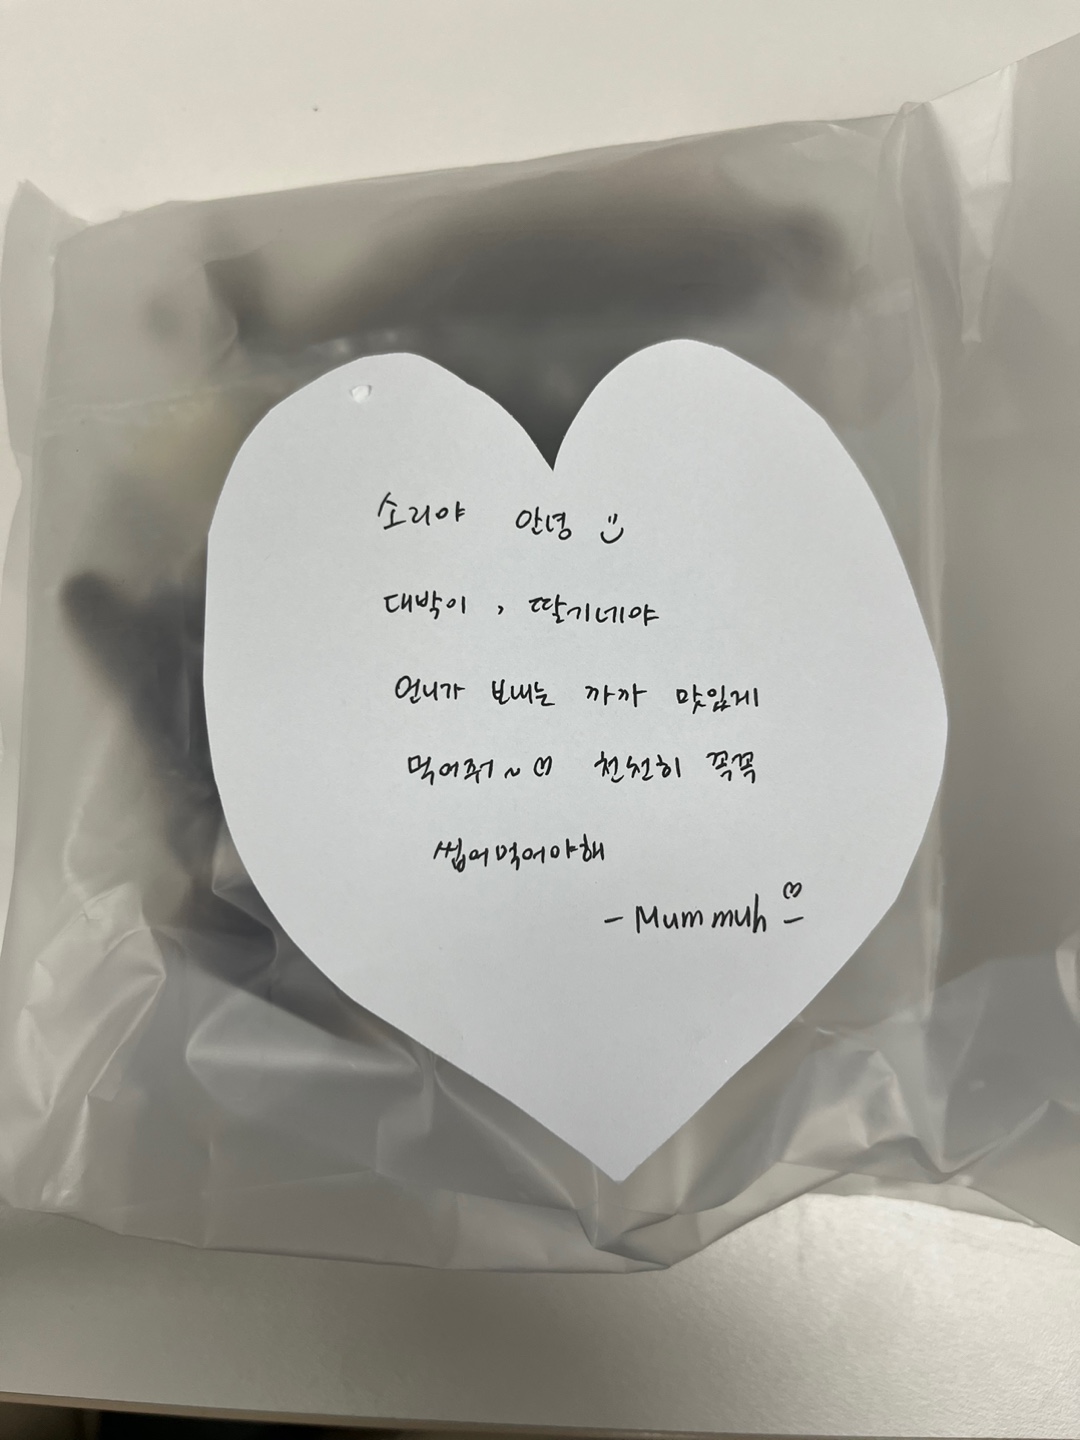 소리야 안녕
대박이, 딸기네야
언니가 보내는 까까 맛있게
먹어줘~♡ 천천히 꼭꼭
씹어먹어야해
- Mummuh♡ -